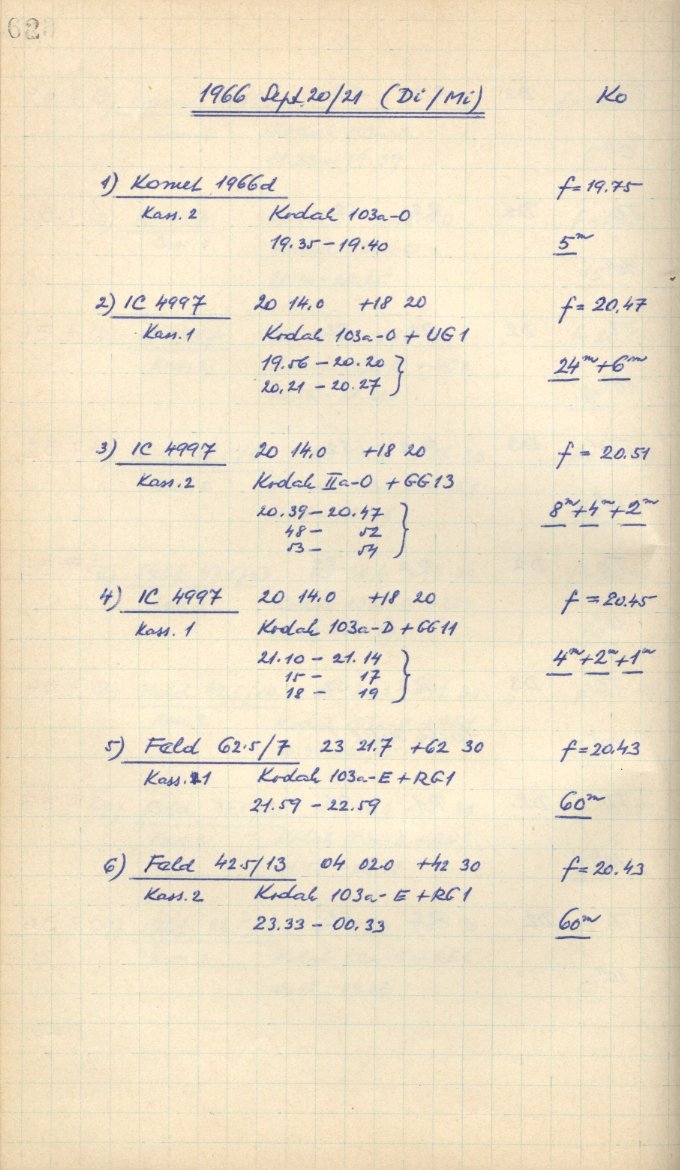 62
1966 Sept. 20/21 (Di/Mi) Ko
1) Komet 1966d f = 19.75
Kass. 2 Kodak 103a-O
19.35 – 19.40 5ᵐ
2) IC 4997 20 14.0 +18 20 f = 20.47
Kass. 1 Kodak 103a-O + UG1
19.56 – 20.20 24ᵐ + 6ᵐ
20.21 – 20.27
3) IC 4997 20 14.0 +18 20 f = 20.51
Kass. 2 Kodak IIa-O + GG13
20.39 – 20.47 8ᵐ + 4ᵐ + 2ᵐ
48 – 52
53 – 54
4) IC 4997 20 14.0 +18 20 f = 20.45
Kass. 1 Kodak 103a-D + GG11
21.10 – 21.14 4ᵐ + 2ᵐ + 1ᵐ
15 – 17
18 – 19
5) Feld 62.5/7 23 21.7 +62 30 f = 20.43
Kass. 1 Kodak 103a-E + RG1
21.59 – 22.59 60ᵐ
6) Feld 42.5/13 04 02.0 +42 30 f = 20.43
Kass. 2 Kodak 103a-E + RG1
23.33 – 00.33 60ᵐ